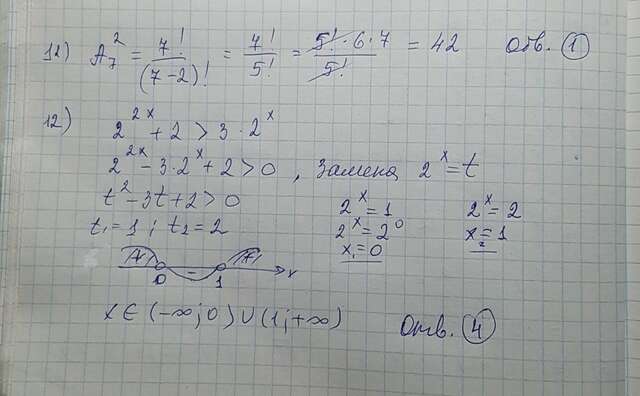 11) A₇² = 7! / (7-2)! = 7! / 5! = 5!·6·7 / 5! = 42 Отв. 1
12) 2^2x + 2 > 3·2^x
2^2x - 3·2^x + 2 > 0, Замена 2^x = t
t² - 3t + 2 > 0
t₁ = 1; t₂ = 2
2^x = 1
2^x = 2^0
x₁ = 0
2^x = 2
x₂ = 1
+ - +
0 1 x
x ∈ (-∞; 0) ∪ (1; +∞) Отв. 4